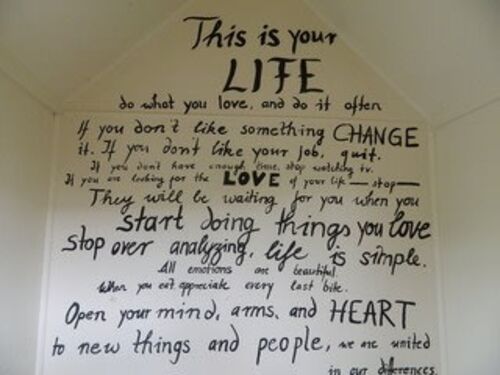 This is your
LIFE
do what you love, and do it often
If you don't like something CHANGE
it. If you don't like your job, quit.
If you don't have enough time, stop watching tv.
If you are looking for the LOVE of your life — stop —
They will be waiting for you when you
start doing things you love
Stop over analyzing, life is simple.
All emotions are beautiful.
When you eat appreciate every last bite.
Open your mind, arms, and HEART
to new things and people, we are united
in our differences.